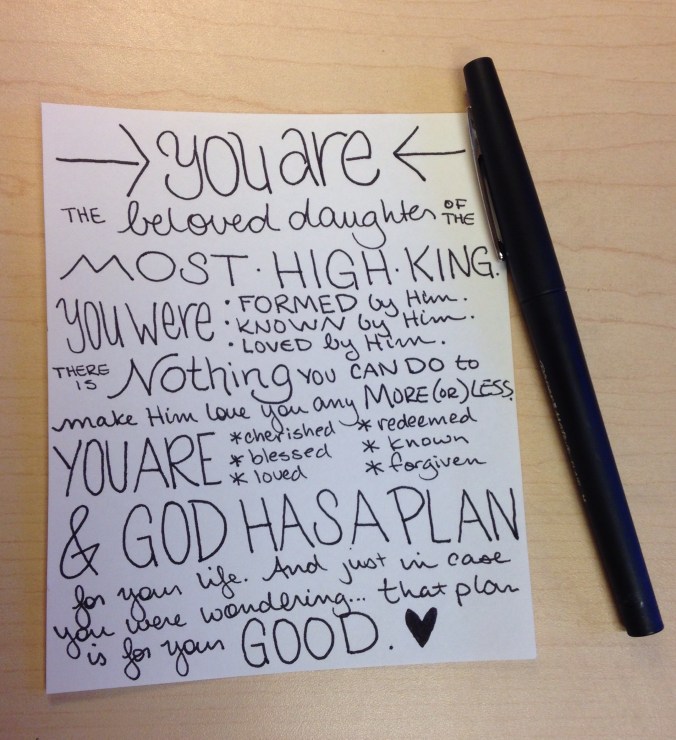 → you are ←
THE beloved daughter OF THE
MOST · HIGH · KING.
you were • FORMED by Him.
• KNOWN by Him.
• LOVED by Him.
THERE IS Nothing YOU CAN DO to
make Him love you any MORE (OR) LESS.
YOU ARE *cherished *redeemed
*blessed *known
*loved *forgiven
& GOD HAS A PLAN
for your life. And just in case
you were wondering... that plan
is for your GOOD. ♥